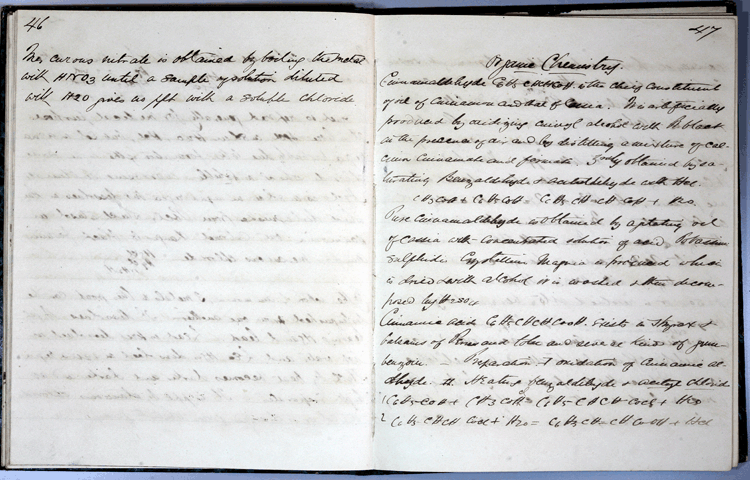 46
Mercurous nitrate is obtained by boiling the metal
with HNO3 until a sample of solution diluted
with H2O gives no ppt with a soluble chloride
47
Organic Chemistry.
Cinnamaldehyde C6H5 CHCHCOH is the chief constituent
of oil of Cinnamon and that of Cassia. Is artificially
produced by oxidizing cinnyl alcohol with Pt black
in the presence of air and by distilling a mixture of cal-
cium Cinnamate and formate. 3rdly obtained by sa-
turating Benzaldehyde & acetaldehyde with HCl.
CH3COH + C6H5COH = C6H5 CH CH COH + H2O.
Pure Cinnamaldehyde is obtained by agitating oil
of cassia with concentrated solution of acid Potassium
Sulphide. Crystalline Magma is produced which
is dried with alcohol it is washed & then decom-
posed by H2SO4
Cinnamic acid C6H5 CHCH COOH. Exists in Styrax &
balsams of Peru and tolu and several kinds of gum
benzoin. — Preparation I oxidation of Cinnamic al-
dehyde. II. Heating benzaldehyde & acetyl chloride
1 C6H5COH + CH3COCl = C6H5 CHCH COCl + H2O
2 C6H5 CHCH COCl + H2O = C6H5 CH CH COOH + HCl